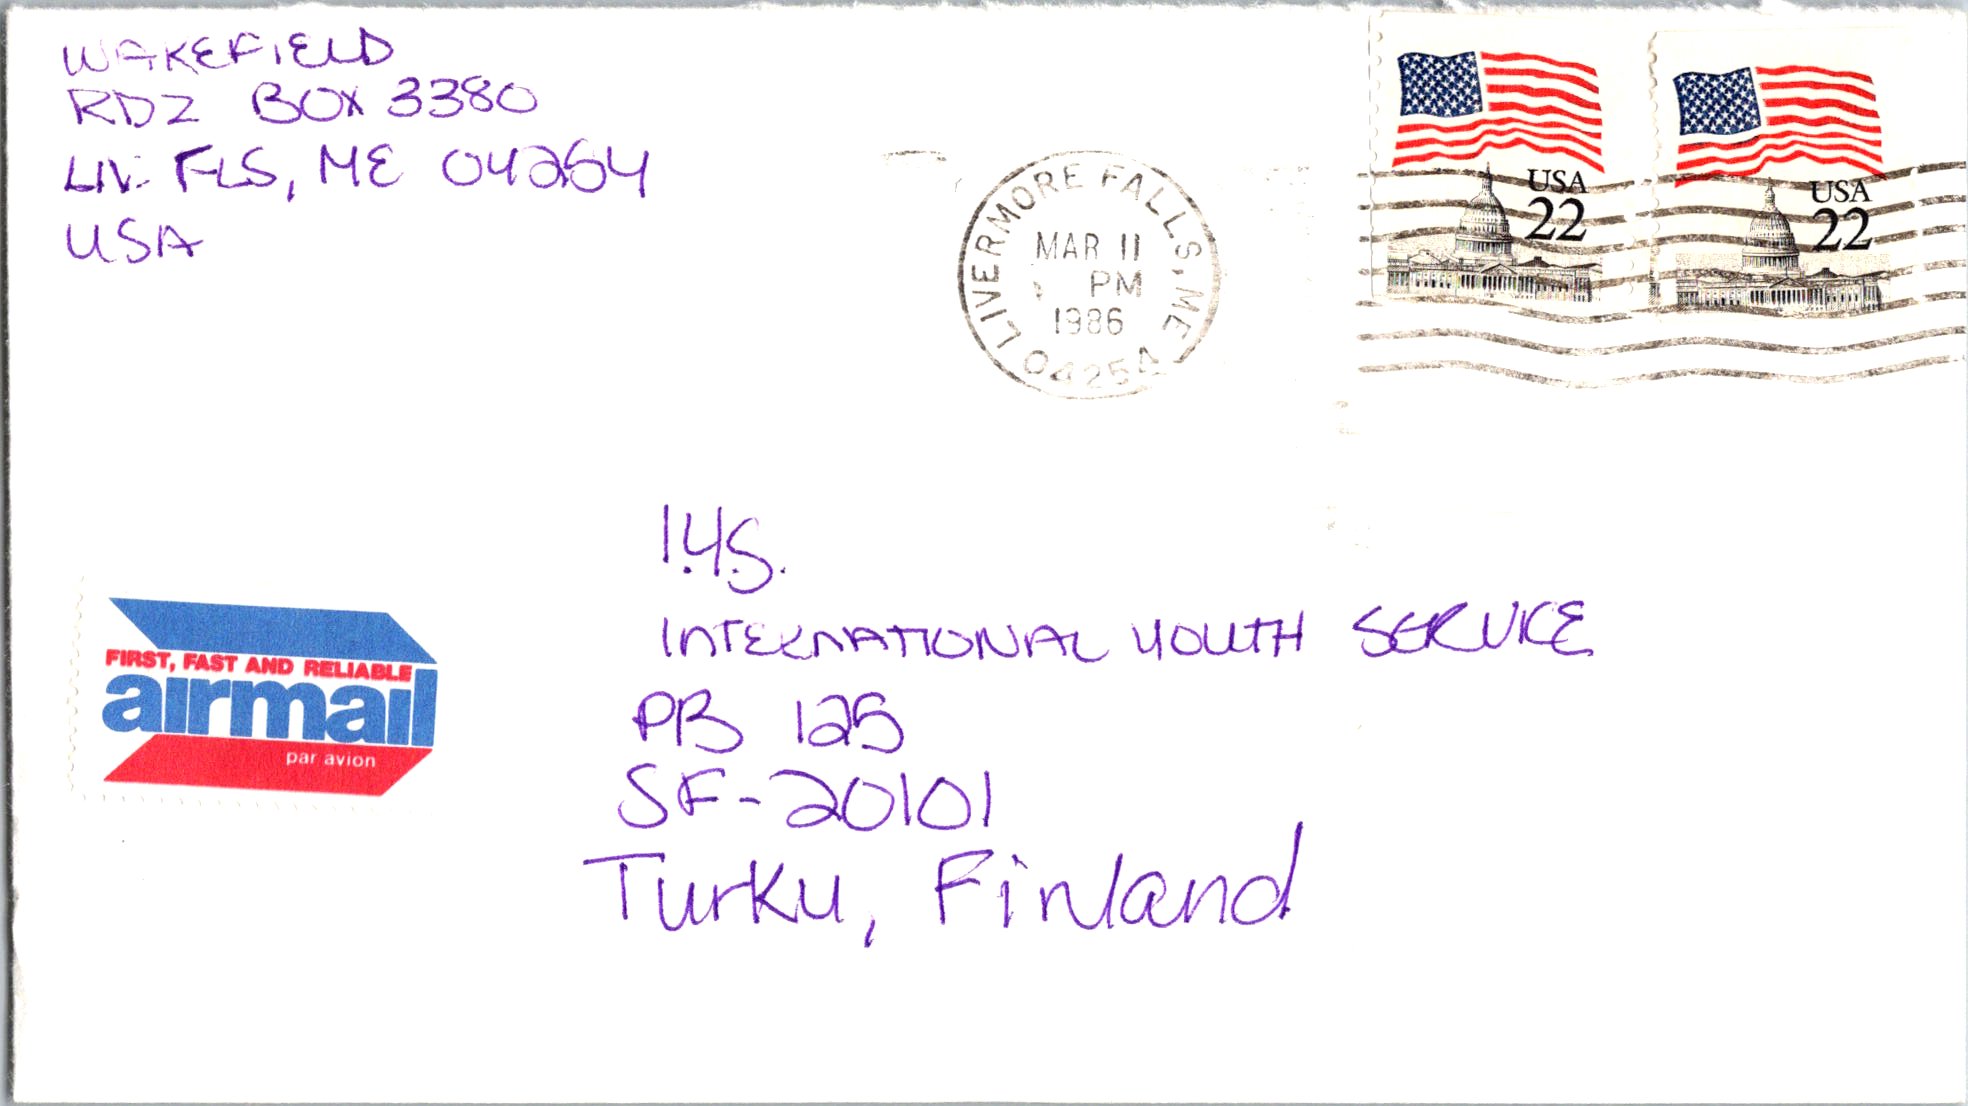 WAKEFIELD
RD2 BOX 3380
LIV. FLS, ME 04254
USA
LIVERMORE FALLS, ME
MAR 11
PM
1986
04254
USA
22
USA
22
I.Y.S.
INTERNATIONAL YOUTH SERVICE
PB 125
SF-20101
Turku, Finland
FIRST, FAST AND RELIABLE
airmail
par avion